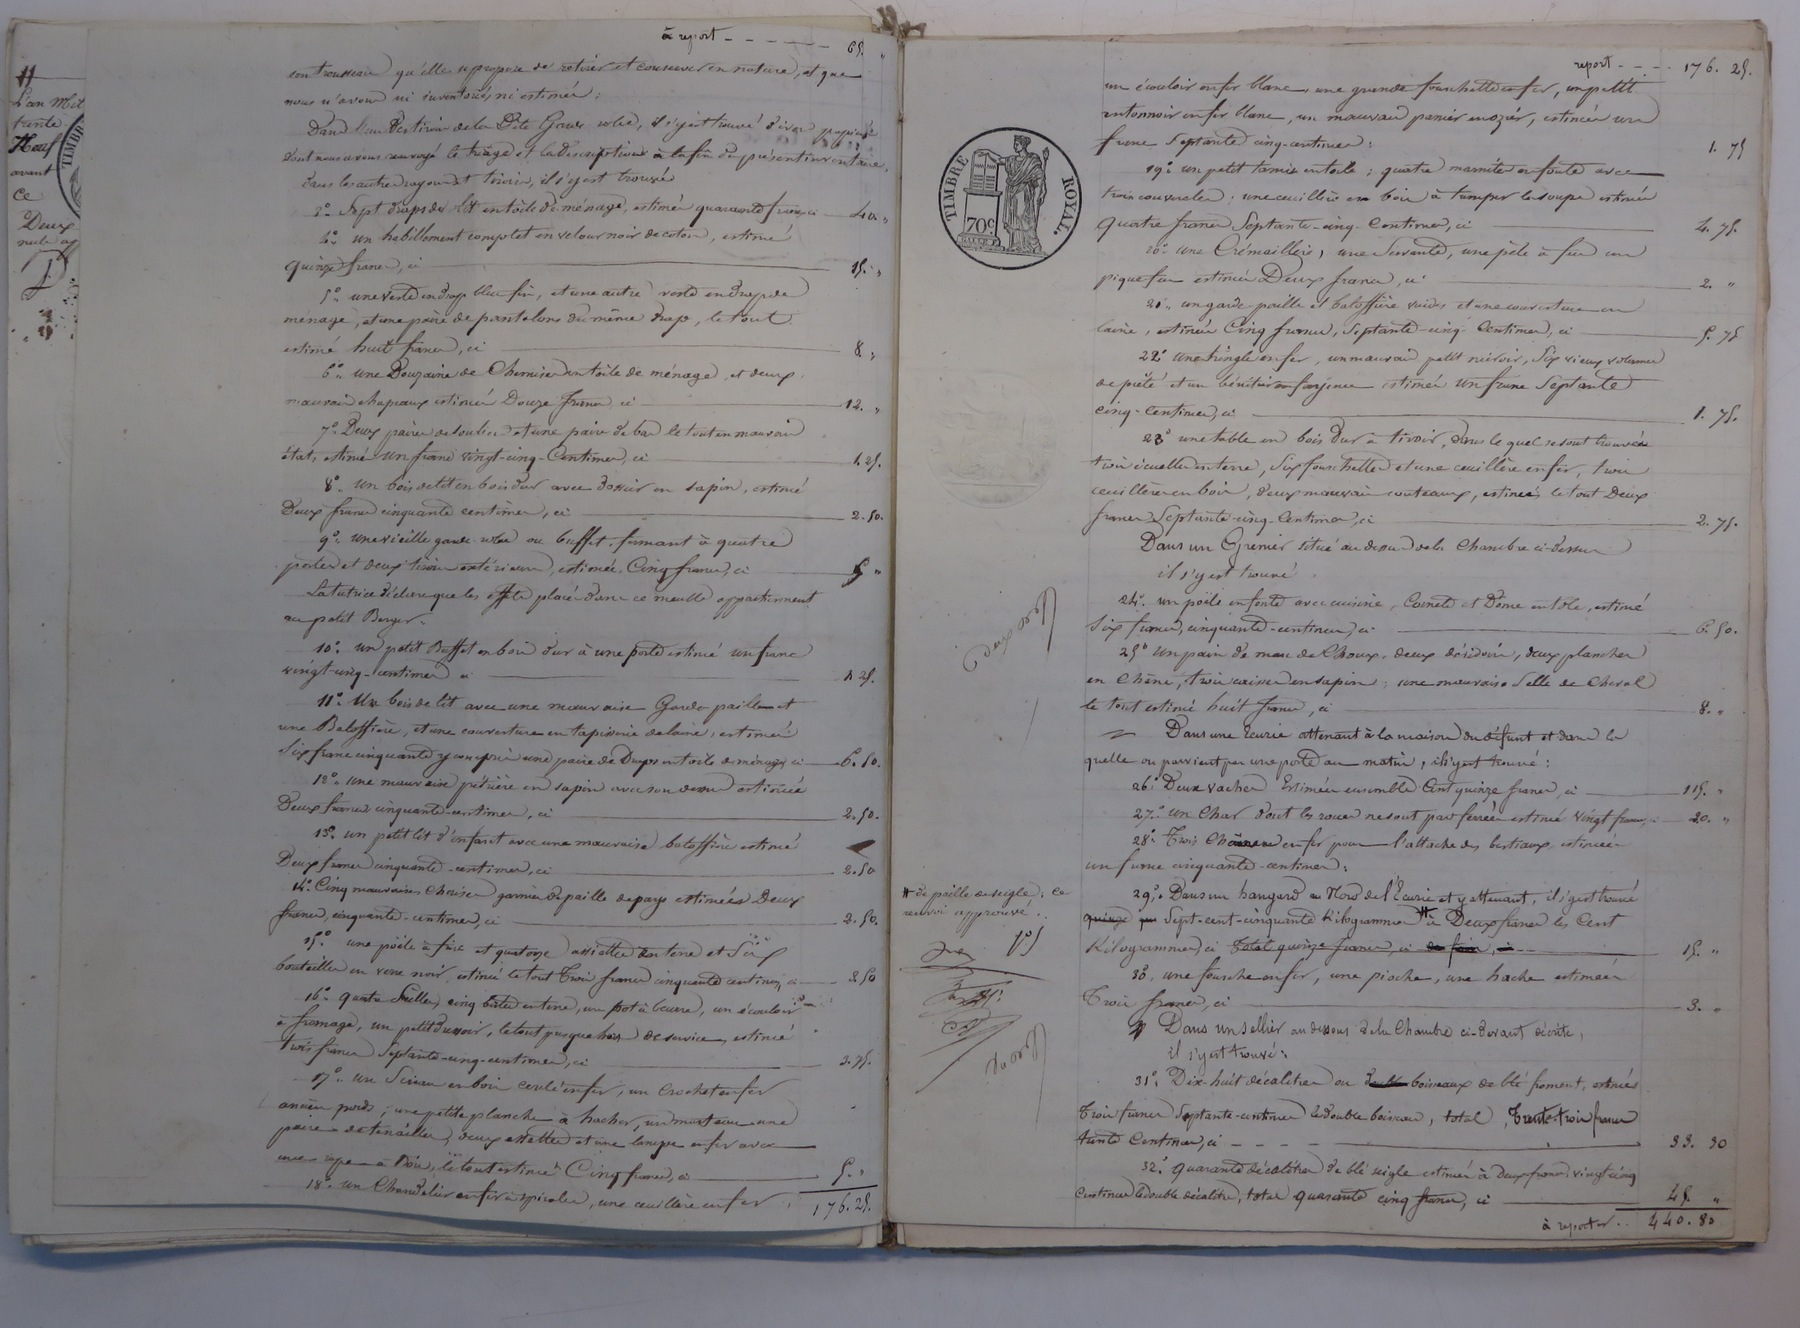 à report - - - - - - - 65. "
son trousseau qu'elle se propose de retirer et conserver en nature, et que
nous n'avons ni inventoriés, ni estimés :
Dans l'un des tiroirs de la dite Garde robe, il s'y est trouvé divers papiers
dont nous avons renvoyé le triage et la description à la fin du présent inventaire,
dans les autres rayons et tiroirs, il s'y est trouvé
3° Sept draps de lit en toile de ménage, estimés quarante francs ci 40 "
4° un habillement complet en velour noir de coton, estimé
quinze francs, ci 15. "
5° une veste en drap bleu fin, et une autre veste en drap de
ménage, et une paire de pantalons du même drap, le tout
estimé huit francs, ci 8 "
6° une Douzaine de Chemises en toile de ménage, et deux
mauvais chapeaux estimés Douze francs, ci 12. "
7° Deux paires de souliers et une paire de bas le tout en mauvais
état, estimé un franc vingt-cinq-Centimes, ci 1. 25.
8° un bois de lit en bois dur avec dossier en sapin, estimé
Deux francs cinquante centimes, ci 2. 50.
9° une vieille garde-robe ou buffet fermant à quatre
portes et deux tiroirs extérieurs, estimée Cinq francs, ci 5 "
La tutrice déclare que les effets placés dans ce meuble appartiennent
au petit Berger.
10° un petit Buffet en bois dur à une porte estimé un franc
vingt-cinq-centimes ci 1. 25.
11° Un bois de lit avec une mauvaise Garde paille et
une Baloffière, et une couverture en tapisserie de laine, estimés
Six francs cinquante y compris une paire de Draps en toile de ménage, ci 6. 50.
12° une mauvaise pétrière en sapin avec son dessus estimée
Deux francs cinquante-centimes, ci 2. 50.
13° un petit lit d'enfant avec une mauvaise baloffière estimé
Deux francs cinquante-centimes, ci 2. 50
14° Cinq mauvaises chaises garnies de paille de pays estimées Deux
francs, cinquante-centimes, ci 2. 50.
15° une poële à frire et quatorze assiettes en terre et Six
bouteilles en verre noir, estimé le tout Trois francs cinquante centimes, ci 3 50
16° quatre Seilles, cinq biches en terre, un pot à beurre, un écouloir
à fromage, un petit dussoir, le tout presque hors de service, estimé
trois francs Septante-cinq-centimes, ci 3. 75.
17° un Seau en bois cerclé en fer, un crochet en fer
ancien poids, une petite planche à hacher, un marteau une
paire de tenailles, deux et une lampe en fer avec
une rape à bois, le tout estimé Cinq francs, ci 5. "
18° un Chandelier en fer à spirale, une cuillère en fer 176. 25.
L'an Mil
trente-
Neuf
avant
Ce
Deux
TIMBRE
report - - - - 176. 25.
un écouloir en fer blanc, une grande fourchette en fer, un petit
entonnoir en fer blanc, un mauvais panier en ozier, estimés un
franc Septante cinq-centimes : 1. 75
19° un petit tamis en toile ; quatre marmites en fonte avec
trois couvercles ; une cuillère en bois à tremper la soupe estimés
quatre francs Septante-cinq-Centimes, ci 4. 75.
20° une Crémaillère, une Servante, une pèle à feu un
pique feu estimés Deux francs, ci 2. "
21° un garde paille et baloffière vuides et une couverture en
laine, estimés Cinq francs, Septante-cinq-Centimes, ci 5. 75
22° une tringle en fer, un mauvais petit miroir, Six vieux volumes
de piété et un bénitier en fayence estimés Un franc Septante
cinq-Centimes, ci 1. 75.
23° une table en bois dur à tiroir, dans lequel se sont trouvées
trois écuelles en terre, Six fourchettes et une cuillère en fer, trois
cuillères en bois, deux mauvais couteaux, estimés, le tout Deux
francs Septante-cinq-Centimes, ci 2. 75.
Dans un Grenier situé au dessus de la Chambre ci-dessus
il s'y est trouvé.
24° un poile en fonte avec cuisine, Cornets et Dôme en tôle, estimé
Six francs, cinquante-centimes, ci 6. 50.
25° Un pain de marc de Choux, deux dévidoirs, deux planches
en Chêne, trois caisses en sapin ; une mauvaise Selle de Cheval
le tout estimé huit francs, ci 8. "
Dans une Ecurie attenant à la maison du défunt et dans la
quelle on parvient par une porte au matin, il s'y est trouvé :
26° Deux vaches Estimées ensemble Cent quinze francs, ci 115. "
27° un Char dont les roues ne sont pas ferrées estimé vingt francs, ci 20. "
28° Trois Chaînes en fer pour l'attache des bestiaux estimées
un franc cinquante-centimes :
29° Dans un hangard au Nord de l'Ecurie et y attenant, il s'y est trouvé
quinze Sept-cent-cinquante Kilogrammes # à Deux francs les Cent
Kilogrammes, ci total quinze francs, ci 15. "
30° une fourche en fer, une pioche, une hache estimées
Trois francs, ci 3. "
Dans un Sellier au dessous de la Chambre ci-devant décrite,
il s'y est trouvé :
31° Dix-huit décalitres ou boisseaux de blé froment, estimés
Trois francs Septante-centimes le double boisseau, total, Trente-trois francs
trente Centimes, ci - - - - 33. 30
32° quarante décalitres de blé seigle estimés à Deux francs vingt-cinq
Centimes le double décalitre, total quarante cinq francs, ci 45. "
à reporter . . 440. 80
TIMBRE ROYAL.
70c
# de paille de seigle ; ce
renvoi approuvé . .